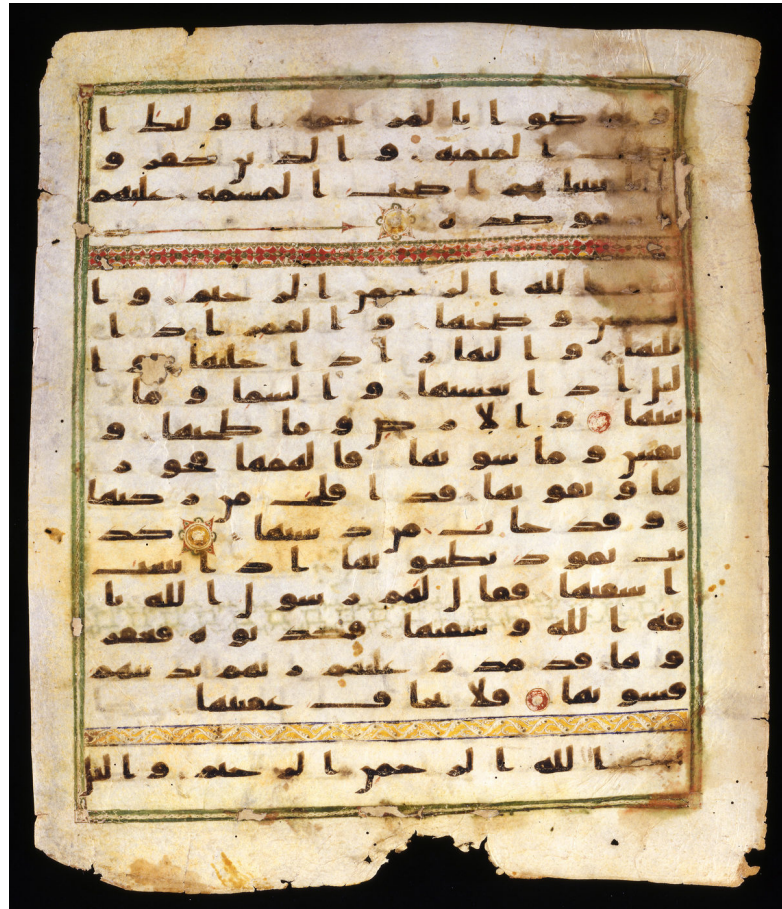 و تواصوا بالمرحمة اولئك ا
صحب الميمنة والذين كفرو
ا بايتنا هم اصحب المشمة عليهم
نار موصدة
بسم الله الرحمن الرحيم وا
لشمس وضحيها والقمر اذا
تليها والنهار اذا جليها وا
ليل اذا يغشيها والسما وما
بنيها والارض وما طحيها و
نفس وما سويها فالهمها فجور
ها وتقويها قد افلح من زكيها
وقد خاب من دسيها كذ
بت ثمود بطغويها اذ انبعث
اشقيها فقال لهم رسول الله نا
قة الله وسقيها فكذبوه فعقر
وها فدمدم عليهم ربهم بذنبهم
فسويها فلا يخاف عقبيها
بسم الله الرحمن الرحيم واليل